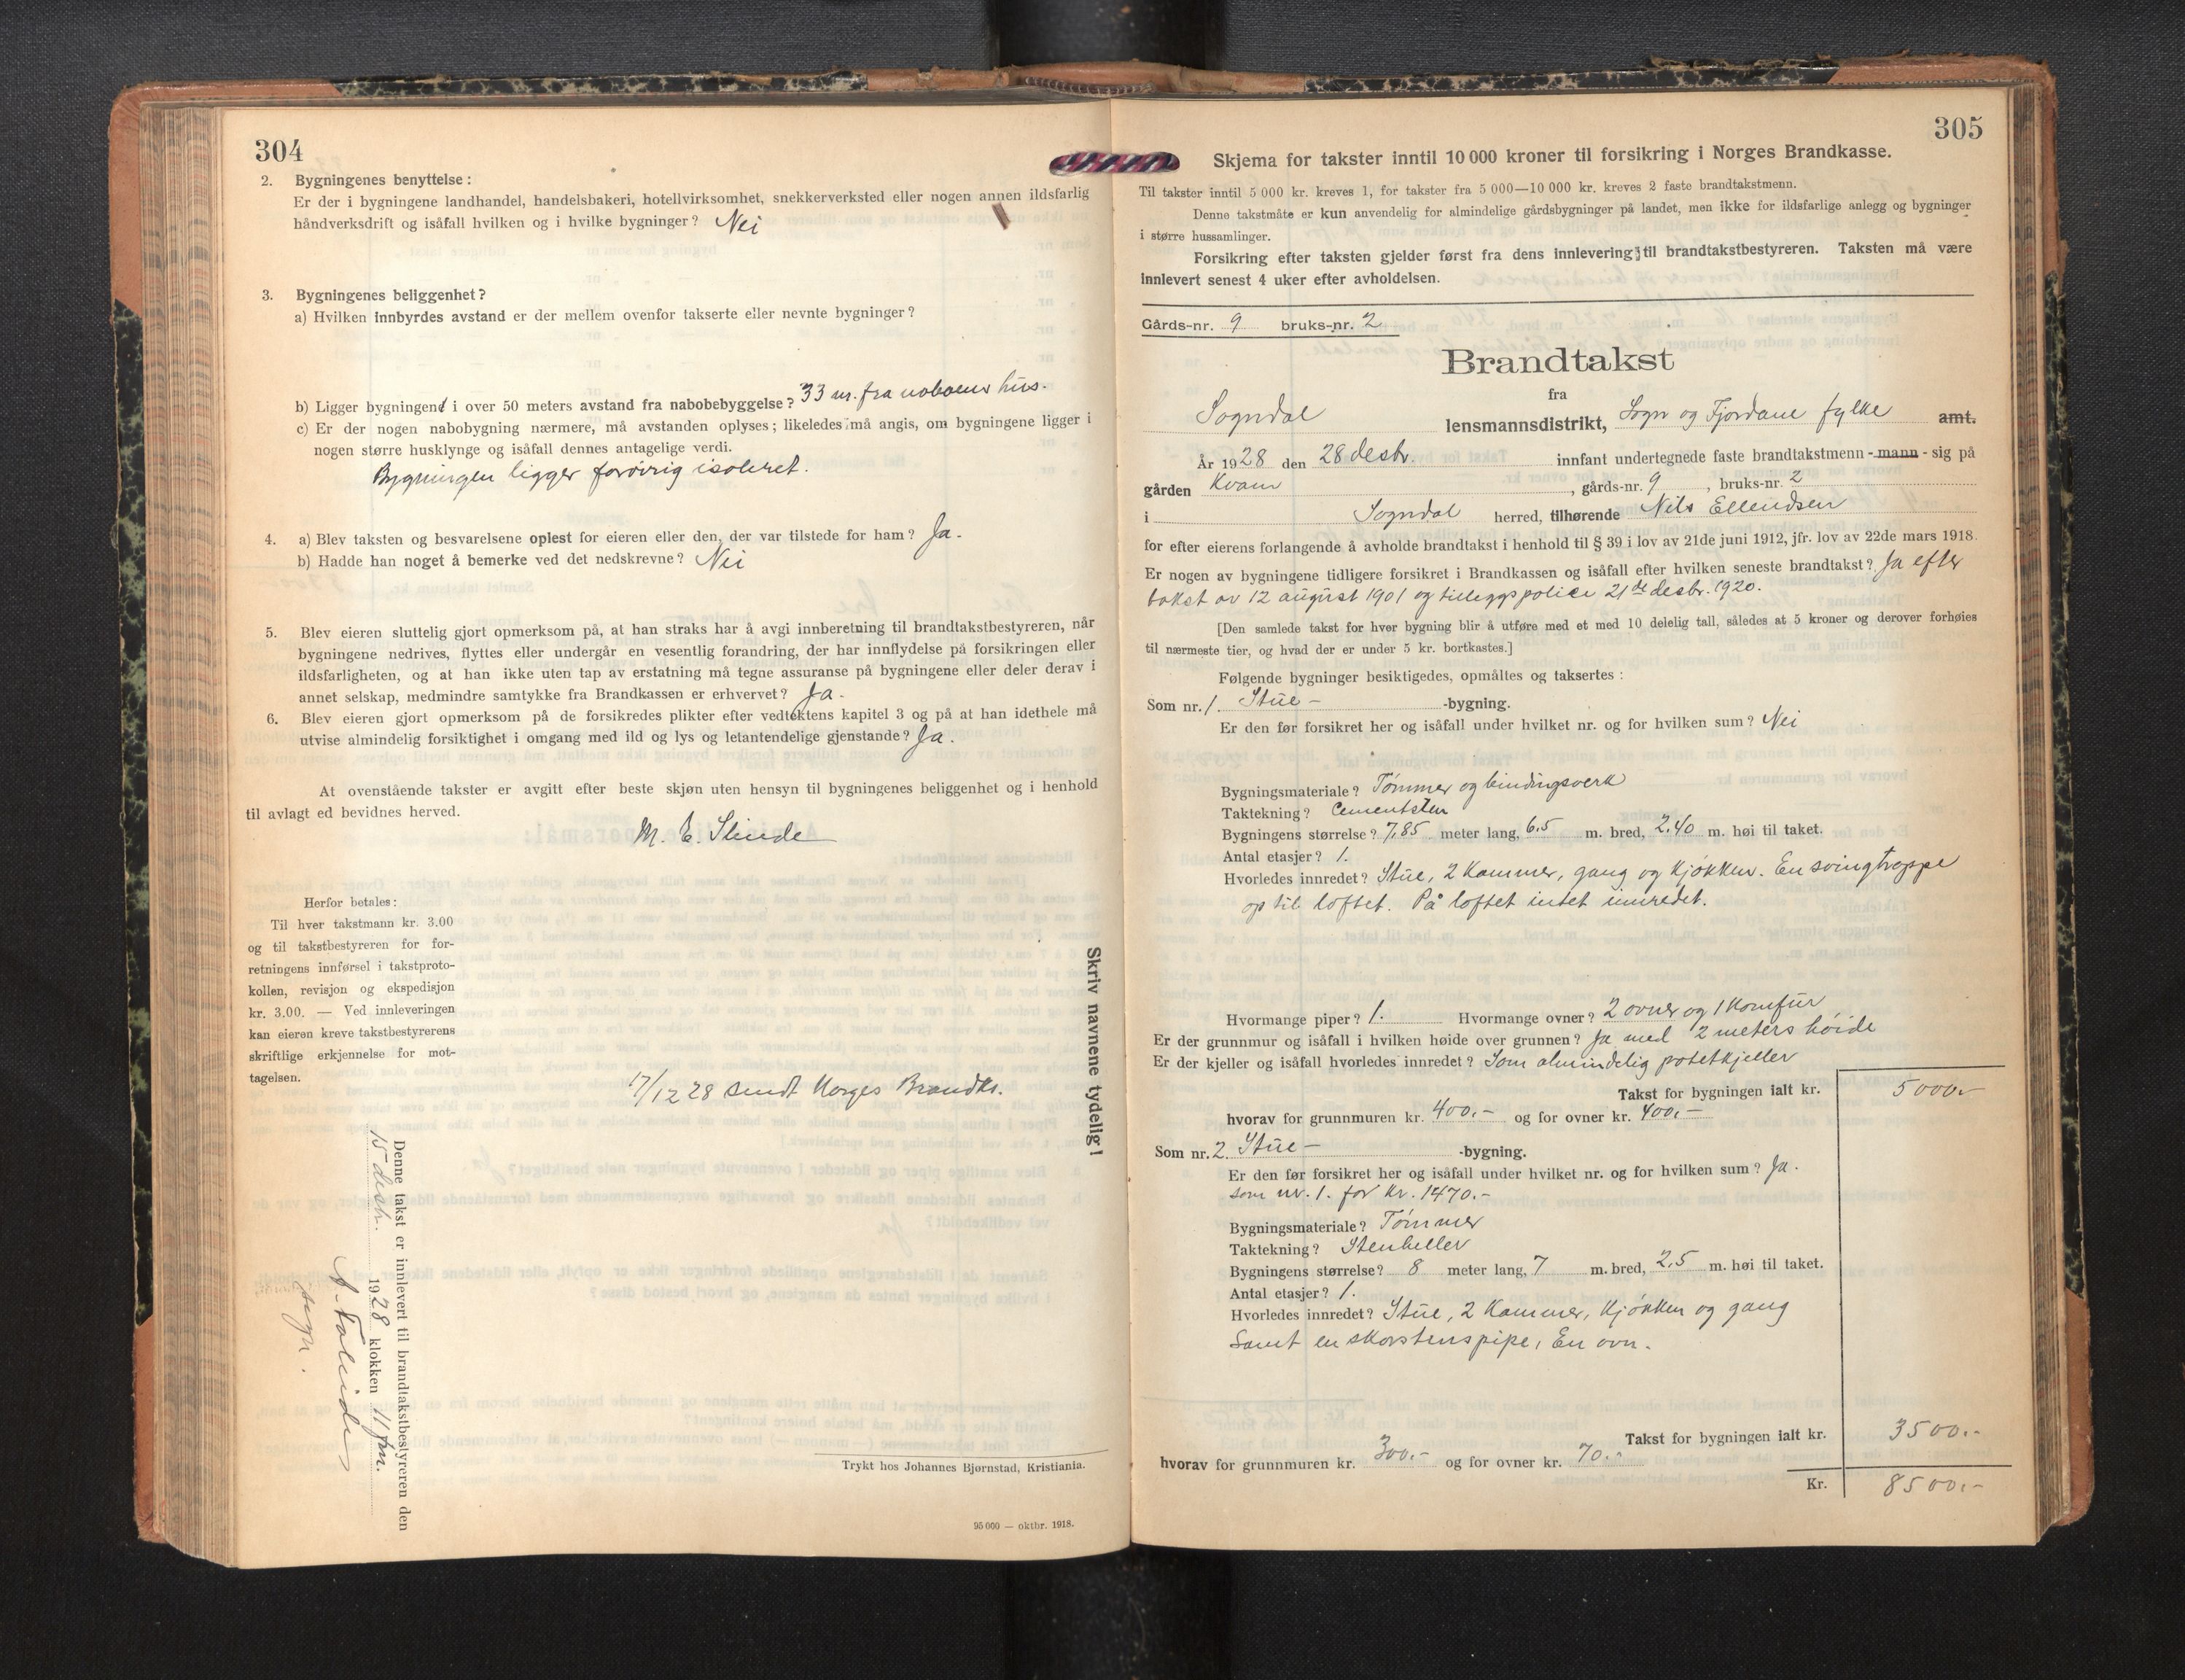 304
2. Bygningenes benyttelse:
Er der i bygningene landhandel, handelsbakeri, hotellvirksomhet, snekkerverksted eller nogen annen ildsfarlig
håndverksdrift og isåfall hvilken og i hvilke bygninger? Nei
3. Bygningenes beliggenhet?
a) Hvilken innbyrdes avstand er der mellem ovenfor takserte eller nevnte bygninger?
b) Ligger bygningene i over 50 meters avstand fra nabobebyggelse? 33 m. fra naboens hus.
c) Er der nogen nabobygning nærmere, må avstanden oplyses; likeledes må angis, om bygningene ligger i
nogen større husklynge og isåfall dennes antagelige verdi.
Bygningen ligger forøvrig isoleret.
4. a) Blev taksten og besvarelsene oplest for eieren eller den, der var tilstede for ham? Ja.
b) Hadde han noget å bemerke ved det nedskrevne? Nei
5. Blev eieren sluttelig gjort opmerksom på, at han straks har å avgi innberetning til brandtakstbestyreren, når
bygningene nedrives, flyttes eller undergår en vesentlig forandring, der har innflydelse på forsikringen eller
ildsfarligheten, og at han ikke uten tap av erstatning må tegne assuranse på bygningene eller deler derav i
annet selskap, medmindre samtykke fra Brandkassen er erhvervet? Ja.
6. Blev eieren gjort opmerksom på de forsikredes plikter efter vedtektens kapitel 3 og på at han idethele må
utvise almindelig forsiktighet i omgang med ild og lys og letantendelige gjenstande? Ja.
At ovenstående takster er avgitt efter beste skjøn uten hensyn til bygningenes beliggenhet og i henhold
til avlagt ed bevidnes herved.
M. E. Slinde
Herfor betales:
Til hver takstmann kr. 3.00
og til takstbestyreren for for-
retningens innførsel i takstproto-
kollen, revisjon og ekspedisjon
kr. 3.00. — Ved innleveringen
kan eieren kreve takstbestyrerens
skriftlige erkjennelse for mot-
tagelsen.
17/12 28 sendt Norges Brandks.
Skriv navnene tydelig!
Denne takst er innlevert til brandtakstbestyreren den
15 desbr. 1928 klokken 11 fm.
A. Faleide
sogn.
Trykt hos Johannes Bjørnstad, Kristiania.
95 000 — oktbr. 1918.
305
Skjema for takster inntil 10 000 kroner til forsikring i Norges Brandkasse.
Til takster inntil 5 000 kr. kreves 1, for takster fra 5 000—10 000 kr. kreves 2 faste brandtakstmenn.
Denne takstmåte er kun anvendelig for almindelige gårdsbygninger på landet, men ikke for ildsfarlige anlegg og bygninger
i større hussamlinger.
Forsikring efter taksten gjelder først fra dens innlevering til brandtakstbestyreren. Taksten må være
innlevert senest 4 uker efter avholdelsen.
Gårds-nr. 9 bruks-nr. 2
Brandtakst
fra
Sogndal lensmannsdistrikt, Sogn og Fjordane fylke amt.
År 1928 den 28 desbr. innfant undertegnede faste brandtakstmenn - mann - sig på
gården Kvam, gårds-nr. 9, bruks-nr. 2
i Sogndal herred, tilhørende Nils Ellendsen
for efter eierens forlangende å avholde brandtakst i henhold til § 39 i lov av 21de juni 1912, jfr. lov av 22de mars 1918.
Er nogen av bygningene tidligere forsikret i Brandkassen og isåfall efter hvilken seneste brandtakst? Ja efter
takst av 12 august 1901 og tilleggspolice 21de desbr. 1920.
[Den samlede takst for hver bygning blir å utføre med et med 10 delelig tall, således at 5 kroner og derover forhøies
til nærmeste tier, og hvad der er under 5 kr. bortkastes.]
Følgende bygninger besiktigedes, opmåltes og taksertes:
Som nr. 1. Stue - -bygning.
Er den før forsikret her og isåfall under hvilket nr. og for hvilken sum? Nei
Bygningsmateriale? Tømmer og bindingsverk
Taktekning? Cementsten
Bygningens størrelse? 7,85 meter lang, 6.5 m. bred, 2.40 m. høi til taket.
Antal etasjer? 1.
Hvorledes innredet? Stue, 2 kammer, gang og kjøkken. En svingtrappe
op til loftet. På loftet intet innredet.
Hvormange piper? 1. Hvormange ovner? 2 ovner og 1 komfur
Er der grunnmur og isåfall i hvilken høide over grunnen? Ja med 2 meters høide
Er der kjeller og isåfall hvorledes innredet? Som almindelig potetkjeller
Takst for bygningen ialt kr. 5000.-
hvorav for grunnmuren kr. 400.- og for ovner kr. 400.-
Som nr. 2. Stue - -bygning.
Er den før forsikret her og isåfall under hvilket nr. og for hvilken sum? Ja.
som nr. 1. for kr. 1470.-
Bygningsmateriale? Tømmer
Taktekning? Stenheller
Bygningens størrelse? 8 meter lang, 7 m. bred, 2,5 m. høi til taket.
Antal etasjer? 1.
Hvorledes innredet? Stue, 2 kammer, kjøkken og gang
samt en skorstenspipe, En ovn.
Takst for bygningen ialt kr. 3500.-
hvorav for grunnmuren kr. 300.- og for ovner kr. 70.-
Kr. 8500.-